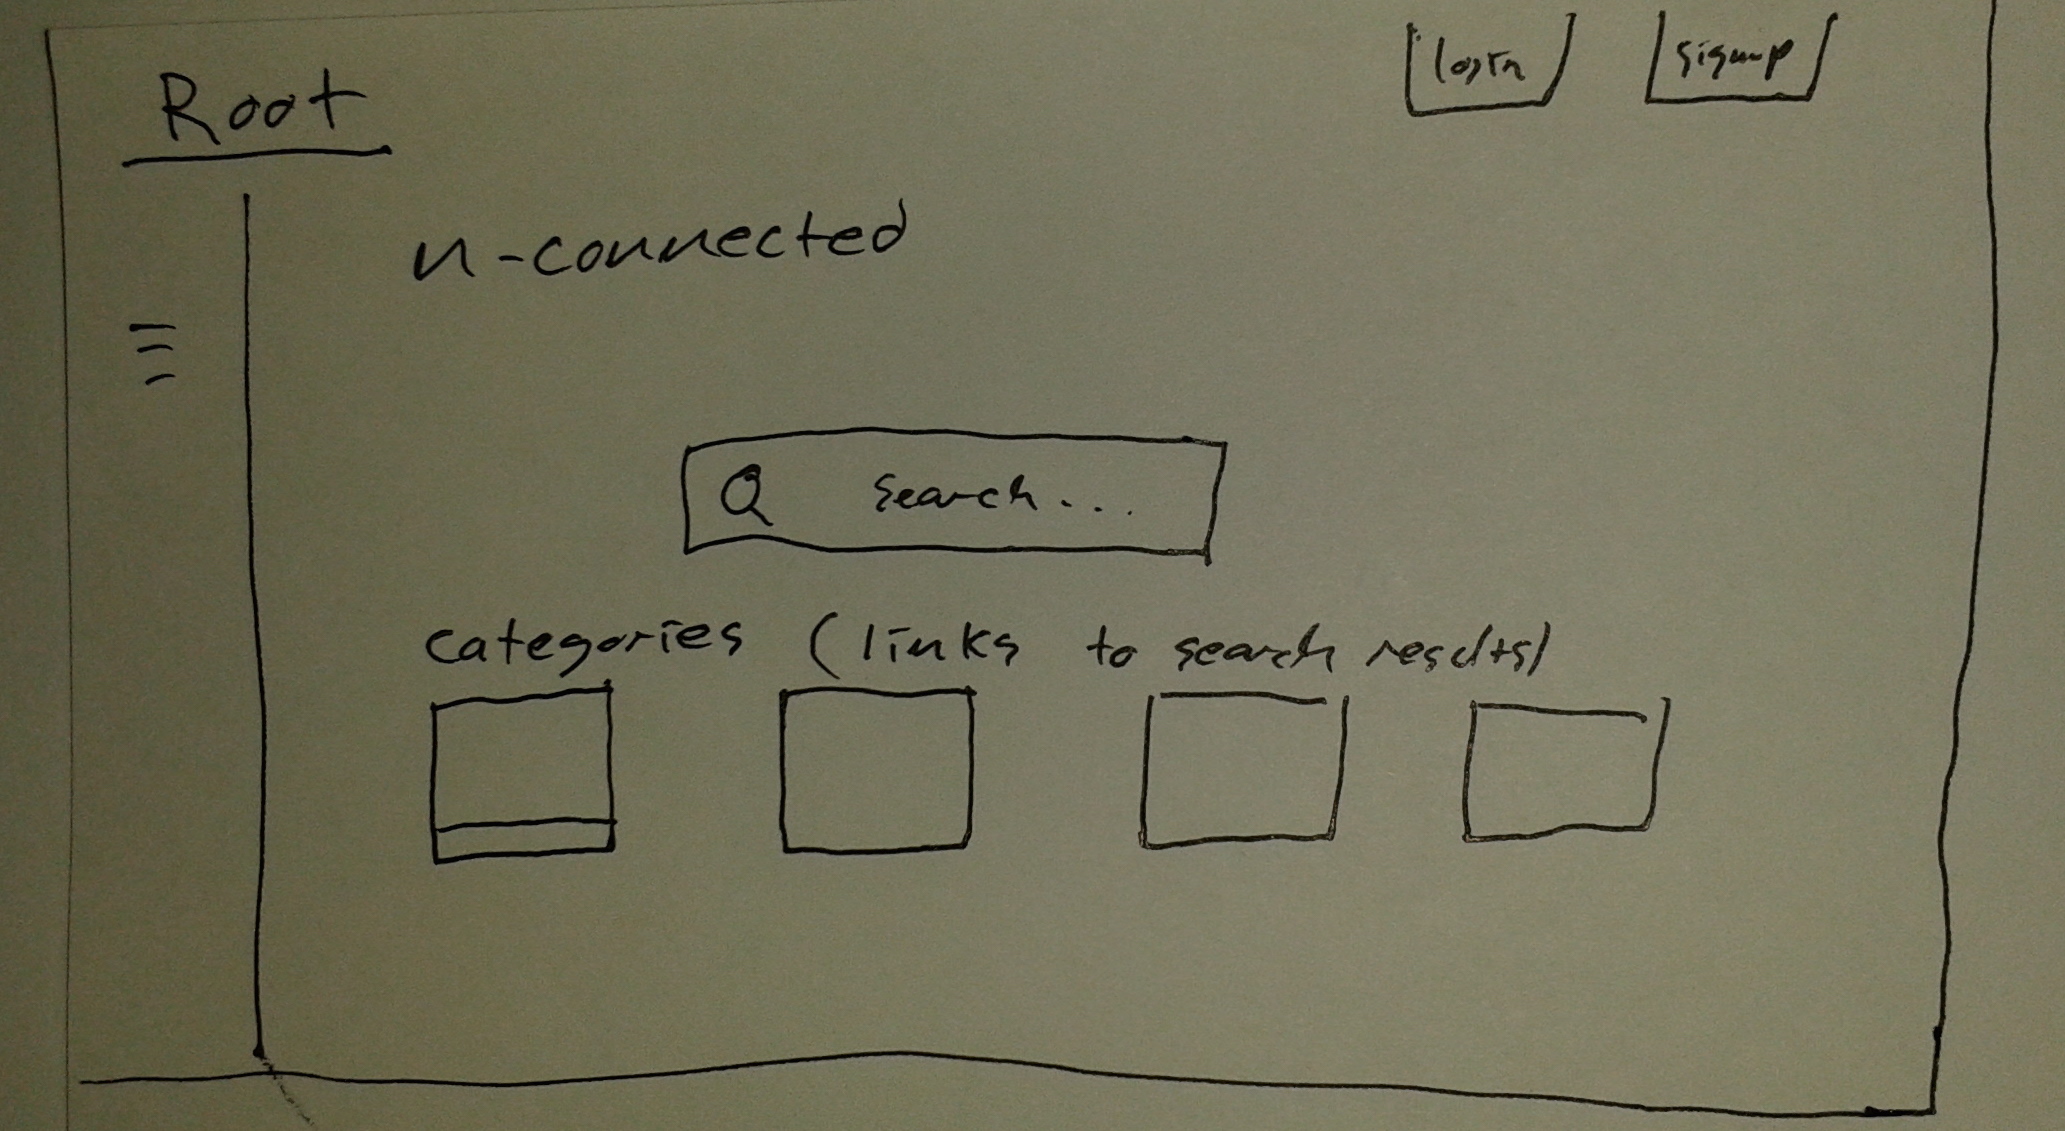 Root
login
signup
n-connected
Search...
categories (links to search results)